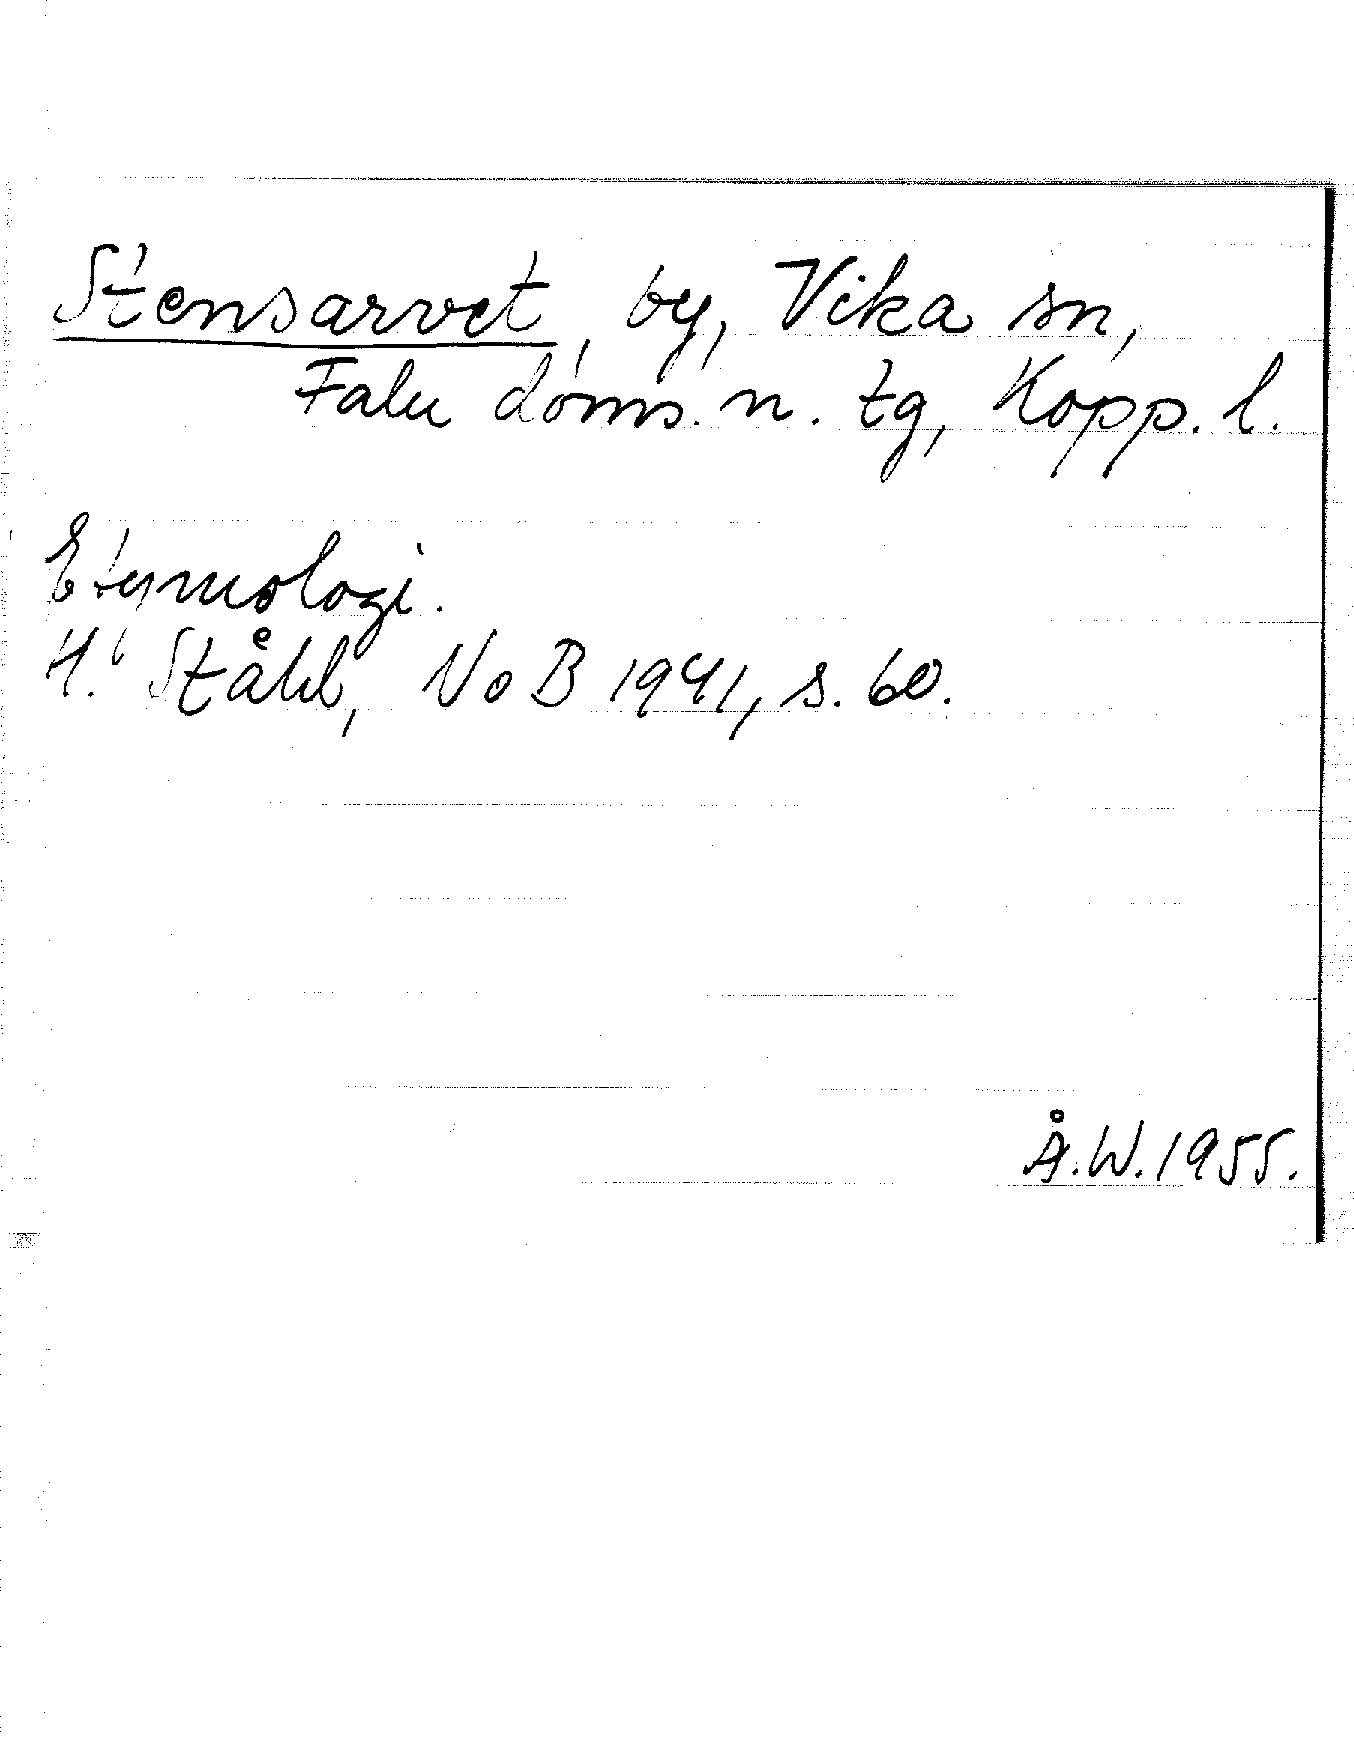 Stensarvet, by, Vika sn,
Falu doms. n. tg, Kopp. l.
Etymologi.
H. Ståhl, NoB 1941, s. 60.
Å.W. 1955.